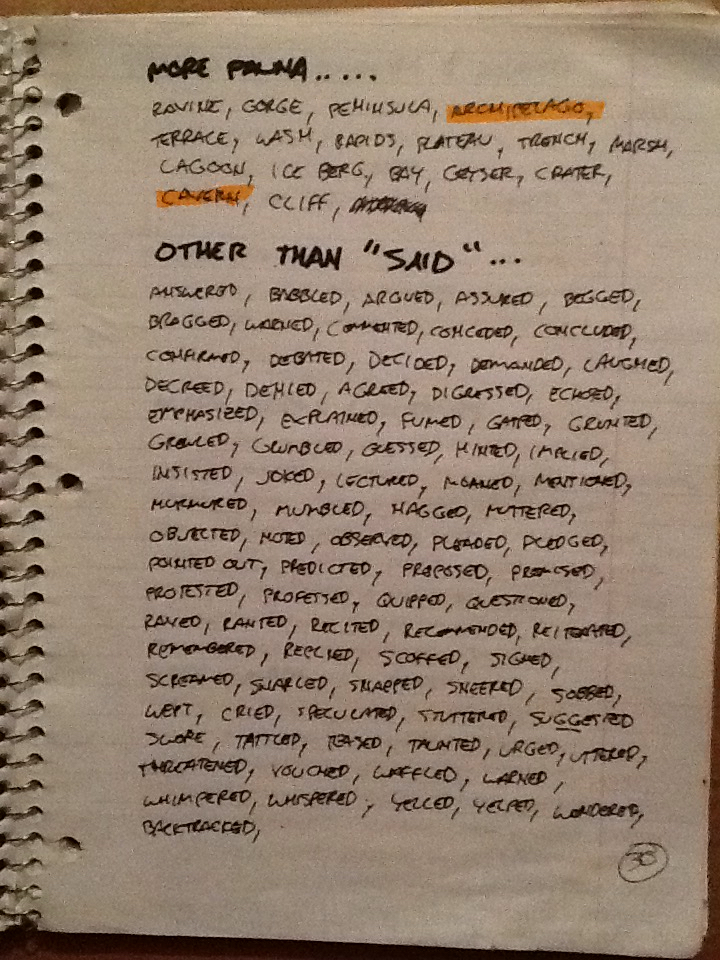 MORE FAUNA.....
RAVINE, GORGE, PENINSULA, ARCHIPELAGO,
TERRACE, WASH, RAPIDS, PLATEAU, TRENCH, MARSH,
LAGOON, ICE BERG, BAY, GEYSER, CRATER,
CAVERN, CLIFF,
OTHER THAN "SAID"...
ANSWERED, BABBLED, ARGUED, ASSURED, BEGGED,
BRAGGED, WARNED, COMMENTED, CONCEDED, CONCLUDED,
CONFIRMED, DEBATED, DECIDED, DEMANDED, LAUGHED,
DECREED, DENIED, AGREED, DIGRESSED, ECHOED,
EMPHASIZED, EXPLAINED, FUMED, GASPED, GRUNTED,
GROWLED, GRUMBLED, GUESSED, HINTED, IMPLIED,
INSISTED, JOKED, LECTURED, MOANED, MENTIONED,
MURMURED, MUMBLED, NAGGED, MUTTERED,
OBJECTED, NOTED, OBSERVED, PLEADED, PLEDGED,
POINTED OUT, PREDICTED, PROPOSED, PROMISED,
PROTESTED, PROFESSED, QUIPPED, QUESTIONED,
RAVED, RANTED, RECITED, RECOMMENDED, REITERATED,
REMEMBERED, REPLIED, SCOFFED, SIGHED,
SCREAMED, SNARLED, SNAPPED, SNEERED, SOBBED,
WEPT, CRIED, SPECULATED, STUTTERED, SUGGESTED
SWORE, TATTLED, TEASED, TAUNTED, URGED, UTTERED,
THREATENED, VOUCHED, WAFFLED, WARNED,
WHIMPERED, WHISPERED, YELLED, YELPED, WONDERED,
BACKTRACKED,
38